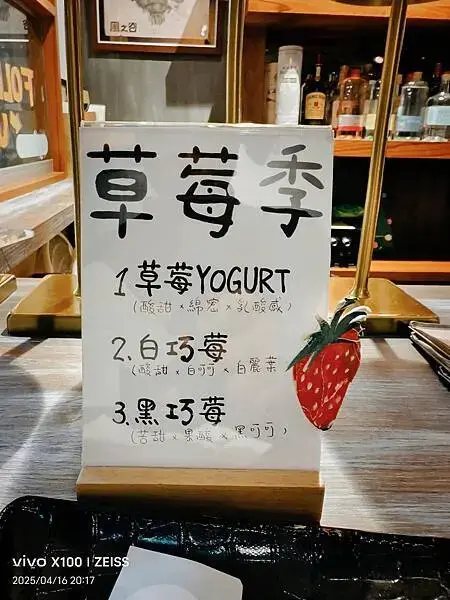 風之谷
FOLL
草莓季
1 草莓YOGURT
(酸甜 × 綿密 × 乳酸感)
2.白巧莓
(酸甜 × 白可可 × 白麗菜
3.黑巧莓
(苦甜 × 果酸 × 黑可可)
vivo X100 | ZEISS
2025/04/16 20:17